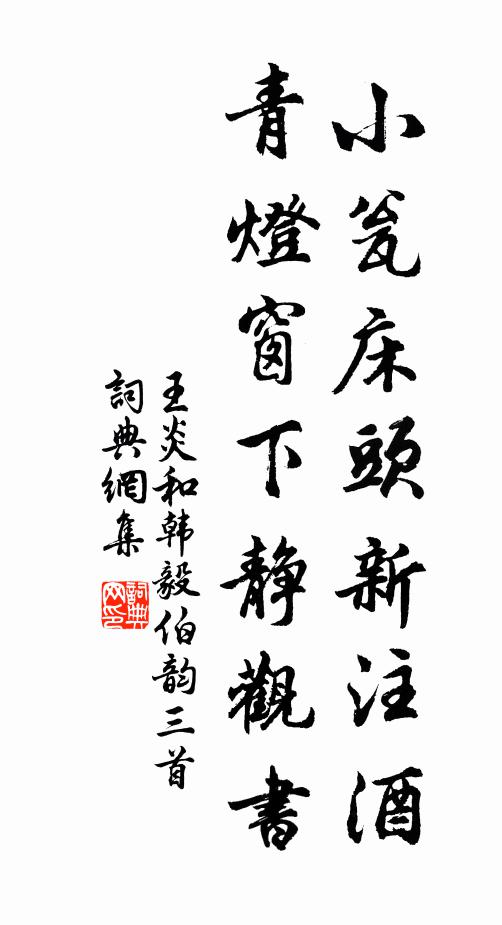 小瓮床頭新注酒
青燈窗下静觀書
王炎和韩毅伯韵三首
詞典網集
詞典網印